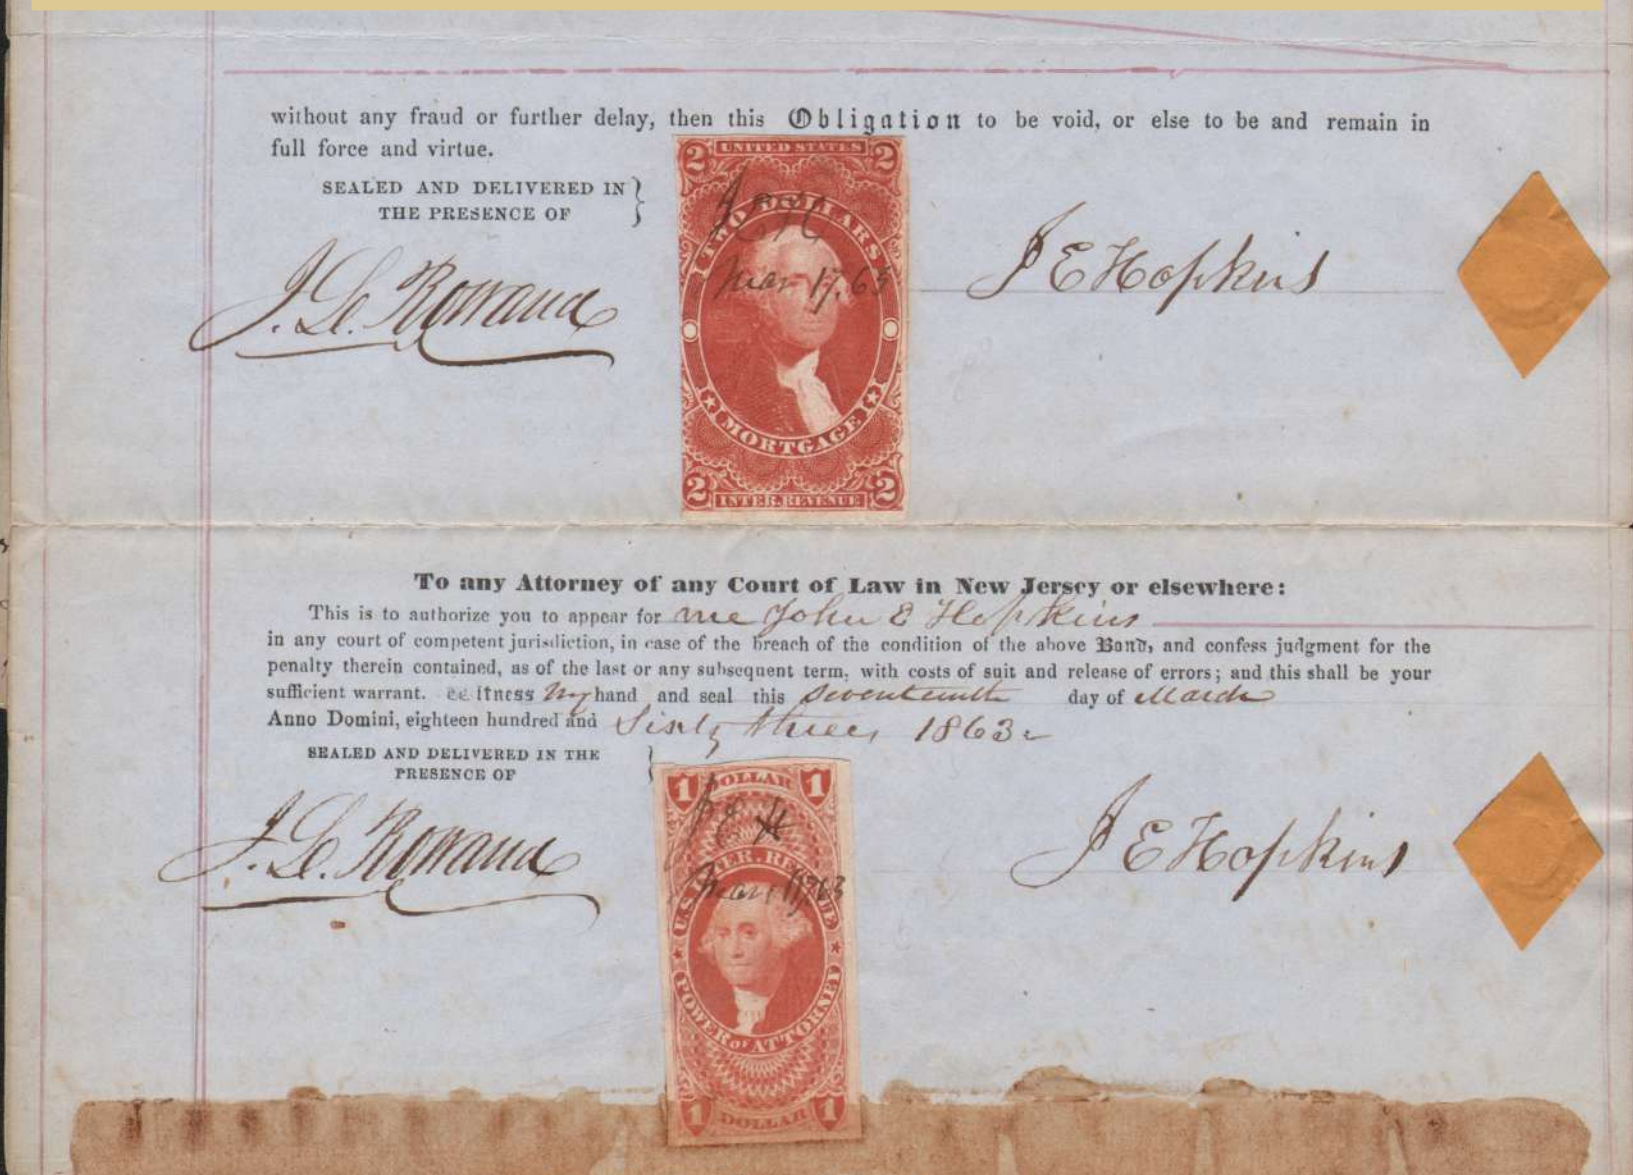 without any fraud or further delay, then this Obligation to be void, or else to be and remain in
full force and virtue.
SEALED AND DELIVERED IN
THE PRESENCE OF
UNITED STATES
2 2
TWO DOLLARS
J E H
Mar 17. 63
MORTGAGE
2 2
INTER. REVENUE
J E Hopkins
To any Attorney of any Court of Law in New Jersey or elsewhere:
This is to authorize you to appear for me John E Hopkins
in any court of competent jurisdiction, in case of the breach of the condition of the above Bond, and confess judgment for the
penalty therein contained, as of the last or any subsequent term, with costs of suit and release of errors; and this shall be your
sufficient warrant. Witness my hand and seal this Seventeenth day of March
Anno Domini, eighteen hundred and Sixty three, 1863
SEALED AND DELIVERED IN THE
PRESENCE OF
1 DOLLAR 1
J E H
U.S. INTER. REVENUE
Mar 17, 63
POWER OF ATTORNEY
1 DOLLAR 1
J E Hopkins